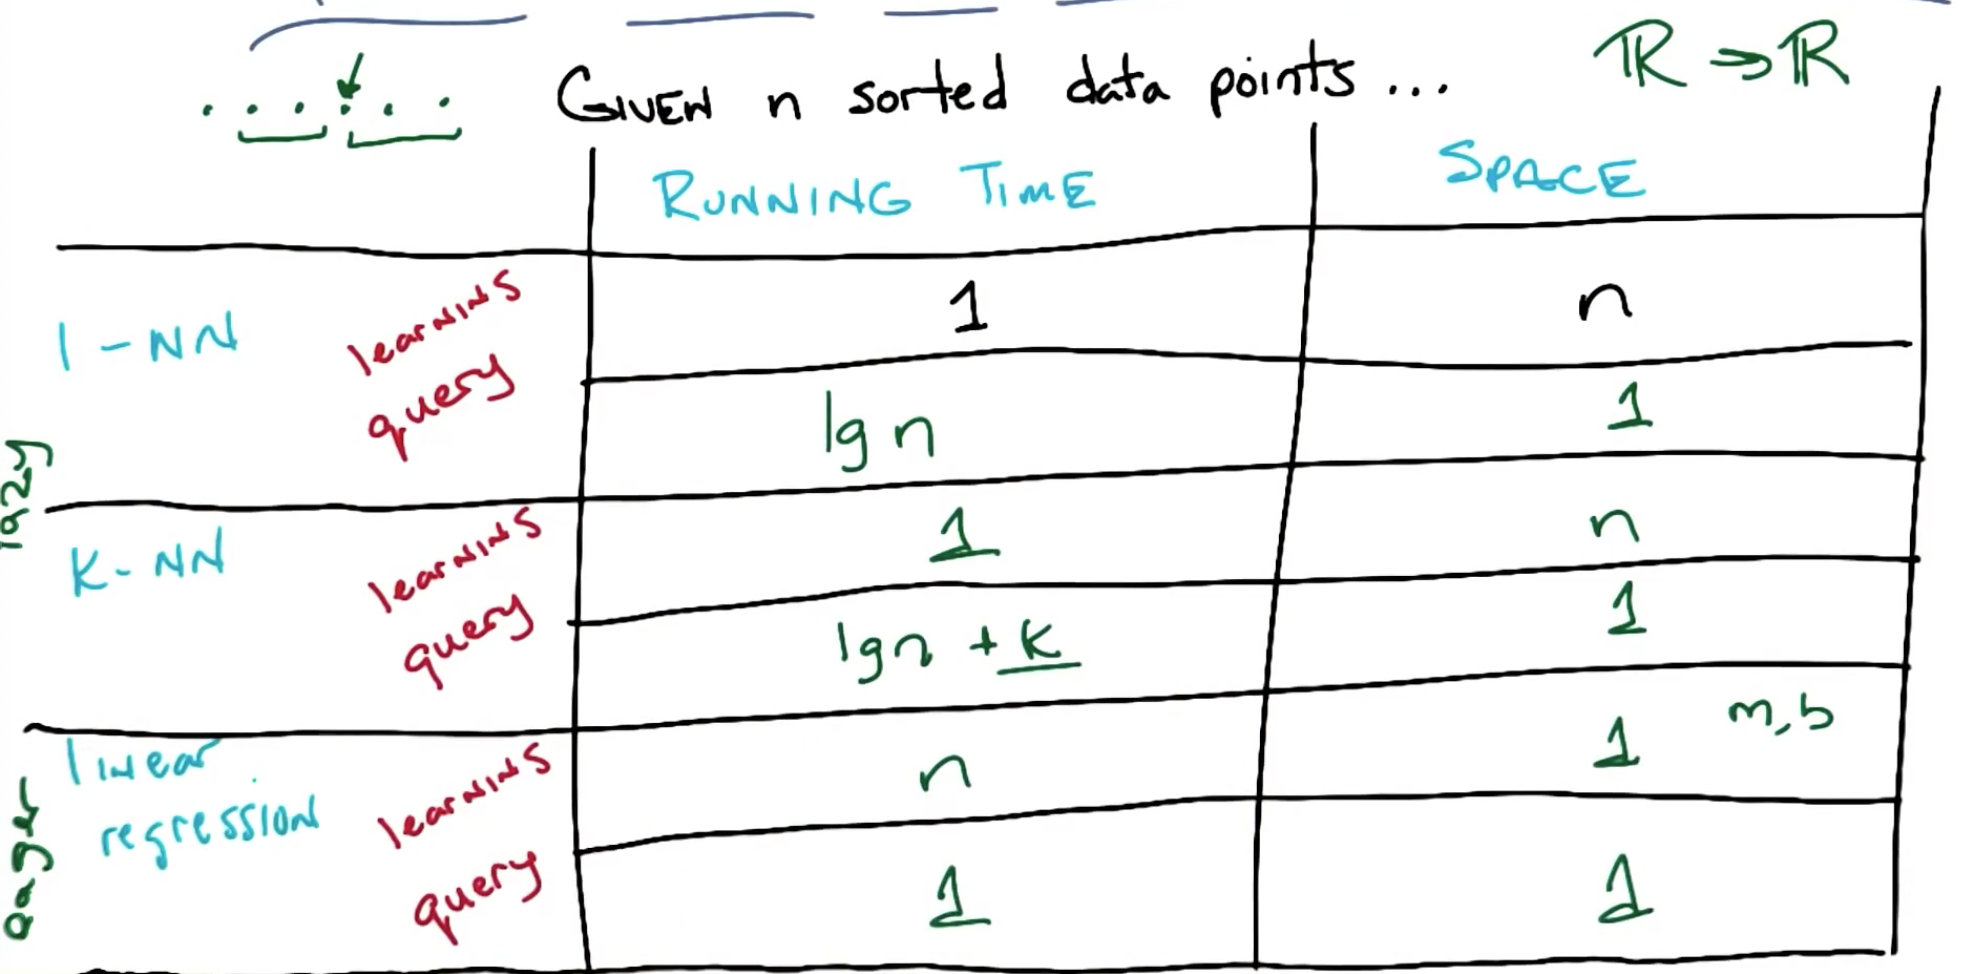 GIVEN n sorted data points ... ℝ → ℝ
RUNNING TIME SPACE
1-NN learning 1 n
query lg n 1
lazy
K-NN learning 1 n
query lg n + K 1
linear regression learning n 1 m, b
query 1 1
eager